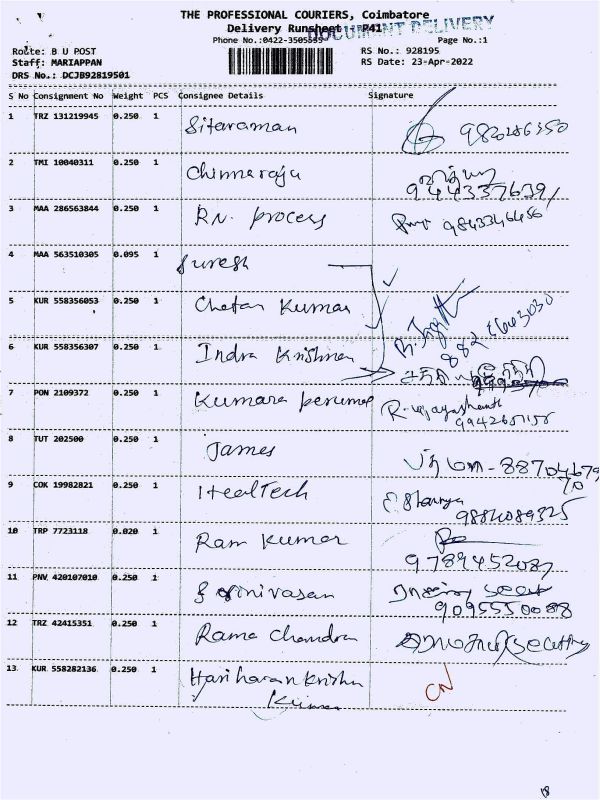 THE PROFESSIONAL COURIERS, Coimbatore
Delivery Runsheet - P41
DOCUMENT DELIVERY
Phone No.:0422-3505555 Page No.:1
Route: B U POST RS No.: 928195
Staff: MARIAPPAN RS Date: 23-Apr-2022
DRS No.: DCJB92819501
S No Consignment No Weight PCS Consignee Details Signature
1 TRZ 131219945 0.250 1 Sitaraman
2 TMI 10040311 0.250 1 Chinnaraju
3 MAA 286563844 0.250 1 R.N. process 9843346456
4 MAA 563510305 0.095 1 Suresh
5 KUR 558356053 0.250 1 Chetan Kumar
6 KUR 558356307 0.250 1 Indra Krishnan
7 PON 2109372 0.250 1 Kumara perumal
8 TUT 202500 0.250 1 James
9 COK 19982821 0.250 1 Healtech
9884089325
10 TRP 7723118 0.020 1 Ram Kumar
9789452087
11 PNV 420107010 0.250 1 Srinivasan
9095550088
12 TRZ 42415351 0.250 1 Rama Chandra
13 KUR 558282136 0.250 1 Hariharan Krishna CN
Kumar